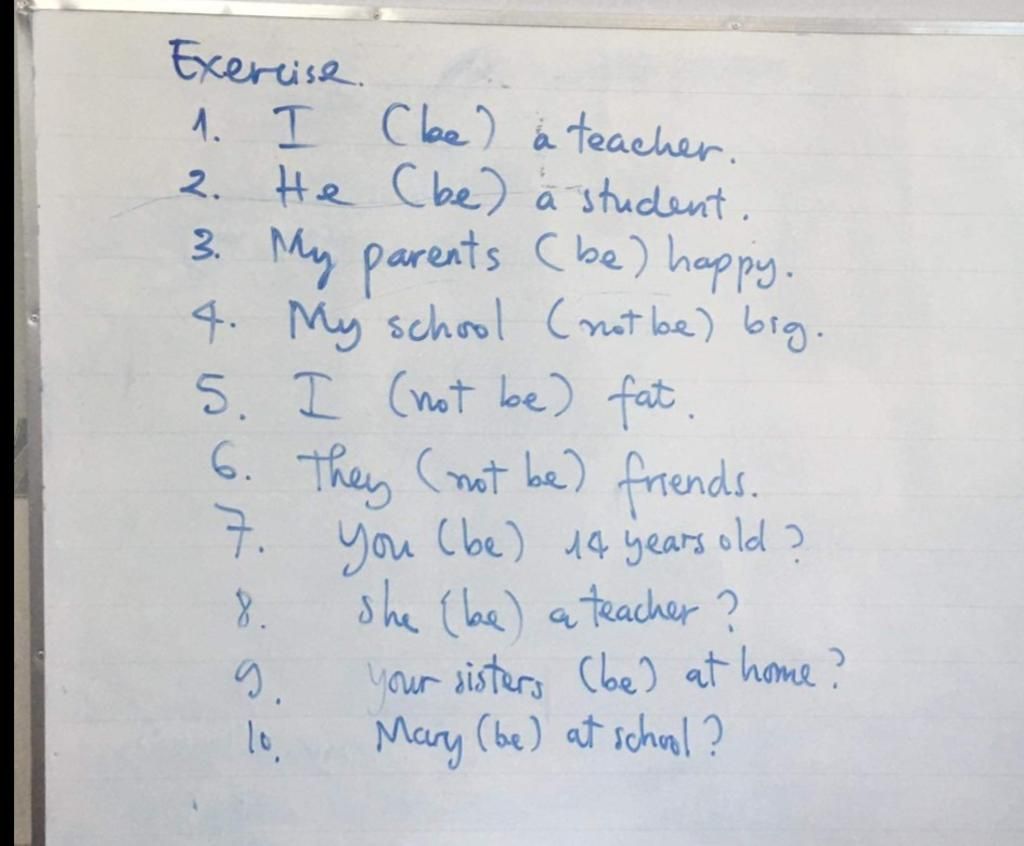 Exercise.
1. I (be) a teacher.
2. He (be) a student.
3. My parents (be) happy.
4. My school (not be) big.
5. I (not be) fat.
6. They (not be) friends.
7. you (be) 14 years old?
8. she (be) a teacher?
9. your sisters (be) at home?
10. Mary (be) at school?